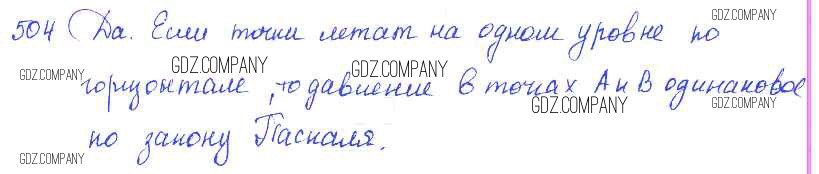 504 Да. Если точки летат на одном уровне по
горизонтале, то давление в точках А и В одинаковое
по закону Паскаля.
GDZ.COMPANY
GDZ.COMPANY
GDZ.COMPANY
GDZ.COMPANY
GDZ.COMPANY
GDZ.COMPANY
GDZ.COMPANY
GDZ.COMPANY